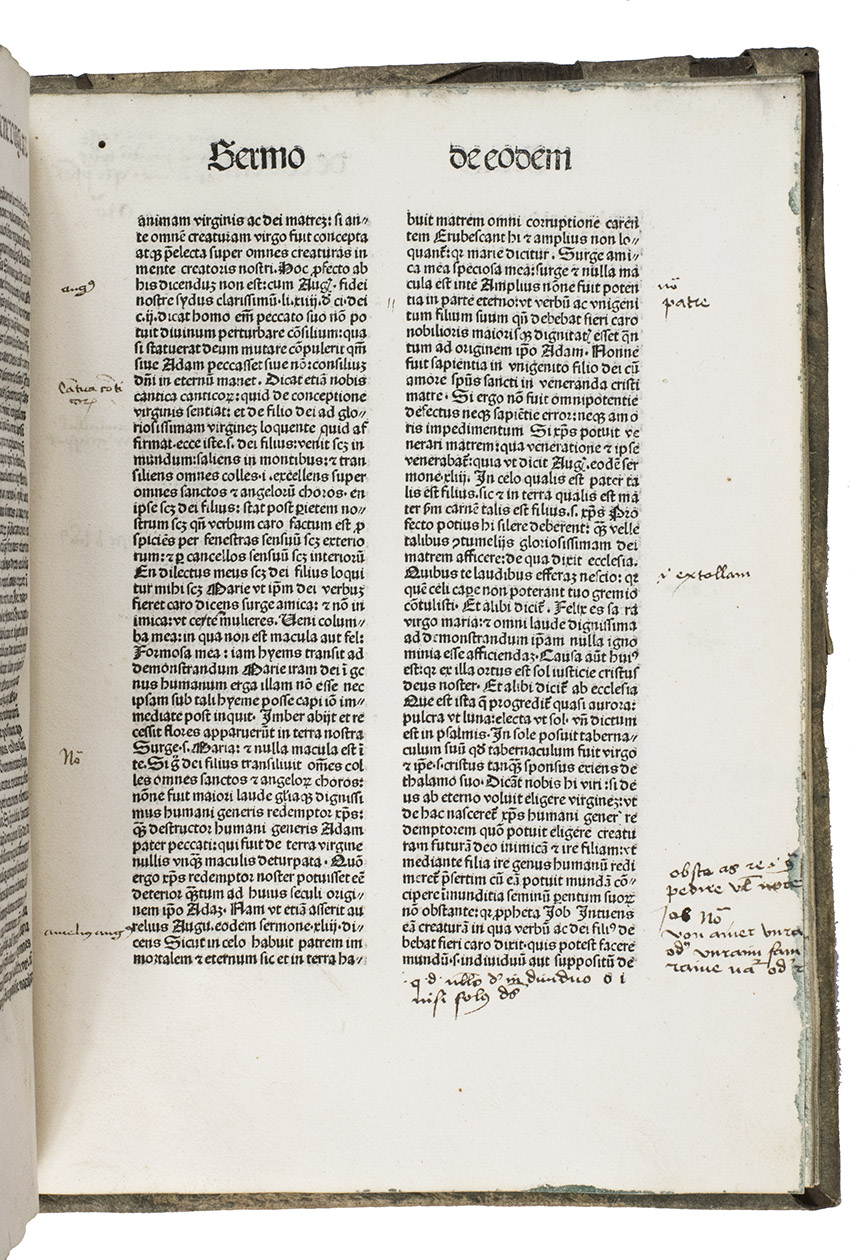 Sermo
de eodem
animam virginis ac dei matreʒ: si an⸗
te omnē creaturam virgo fuit concepta
atqʒ p̄electa super omnes creaturas in
mente creatoris nostri. Hoc ꝓfecto ab
his dicendūʒ non est: cum Augꝯ. fidei
nostre sydus clarissimū. li. xiiij. d̄ ci. dei
c. ij. dicat homo em̄ peccato suo nō po
tuit diuinum perturbare cōsilium: qua
si statuerat deum mutare cōpulerit qm̄
siue Adam peccasset siue nō: consiliuʒ
dn̄i in eternū manet. Dicat etiā nobis
cantica canticoꝝ: quid de conceptione
virginis sentiat: et de filio dei ad glo⸗
riosissimam virgineʒ loquente quid af
firmat. ecce iste. s. dei filius: venit scʒ in
mundum: saliens in montibus: ⁊ tran
siliens omnes colles. i. excellens super
omnes sanctos ⁊ angelorū choros. en
ipse scʒ dei filius: stat post ꝑietem no⸗
strum scʒ qn̄ verbum caro factum est ꝓ
spiciēs per fenestras sensuū scʒ exterio
rum: ⁊ ꝑ cancellos sensuū scʒ interiorū
En dilectus meus scʒ dei filius loqui
tur mihi scʒ Marie vt ip̄m dei verbuʒ
fieret caro dicens surge amica: ⁊ nō in
imica: vt cete mulieres. Ueni colum⸗
ba mea: in qua non est macula aut fel:
Formosa mea: iam hyems transit ad
demōstrandum Marie iram dei ī ge
nus humanum erga illam nō esse nec
ipsam sub tali hyeme posse capi iō im⸗
mediate post inquit. Imber abijt et re
cessit flores apparuerūt in terra nostra
Surge. s. Maria: ⁊ nulla macula est ī
te. Si g̊ dei filius transiliuit om̄es col
les omnes sanctos ⁊ angeloꝝ choros:
nōne fuit maiori laude gl̄iaqʒ dignissi
mus humani generis redemptor xp̄s:
qʒ̄ destructor humani generis Adam
pater peccati: qui fuit de terra virgine
nullis vnqʒ̄ maculis deturpata. Quō
ergo xp̄s redemptor noster potuisset eē
deterior qʒ̄tum ad huius seculi origi⸗
nem ip̄o Adaʒ. Nam vt etiā asserit au
relius Augu. eodem sermone. xliij. di⸗
cens Sicut in celo habuit patrem im⸗
mortalem ⁊ eternum sic et in terra ha⸗
buit matrem omni corruptione carēn
tem Erubescant hi ⁊ amplius non lo⸗
quant̄: qr marie dicitur. Surge ami⸗
ca mea speciosa mea: surge ⁊ nulla ma
cula est inte Amplius nōne fuit poten
tia in parte eterno: vt verbū ac vnigeni
tum filium suum qn̄ debebat fieri caro
nobilioris maiorisqʒ dignitat̄ esset qn̄
tum ad originem ip̄o Adam. Nonne
fuit sapientia in vnigenito filio dei cū
amore spūs sancti in veneranda cristi
matre. Si ergo nō fuit omnipotentie
defectus neqʒ sapiētie error: neqʒ amo
ris impedimentum Si xp̄s potuit ve
nerari matrem: qua veneratione ⁊ ipse
venerabat̄: quia vt dicit Augꝯ. eodē ser
mone. xliij. In celo qualis est pater ta
lis est filius. sic ⁊ in terra qualis est ma
ter ẜm carnē talis est filius. s. xp̄s Pro
fecto potius hi silere deberent: qʒ̄ velle
talibus ꝯtumelijs gloriosissimam dei
matrem afficere: de qua dixit ecclesia.
Quibus te laudibus efferaʒ nescio: qr
quē celi cape non poterant tuo gremio
cōtulisti. Et alibi dicit̄. Felix es sa ra
virgo maria: ⁊ omni laude dignissima
ad demonstrandum ip̄am nulla igno
minia esse afficiendaʒ. Causa aūt huiꝰ
est: qr ex illa ortus est sol iusticie cristus
deus noster. Et alibi dicit̄ ab ecclesia
Que est ista q̄ progredit̄ quasi aurora:
pulcra vt luna: electa vt sol. vn̄ dictum
est in psalmis. In sole posuit taberna⸗
culum suū qd̄ tabernaculum fuit virgo
⁊ ip̄e. s. cristus tanqʒ̄ sponsus exiens de
thalamo suo. Dicāt nobis hi viri: si de
us ab eterno voluit eligere virgineʒ: vt
de hac nasceret̄ xp̄s humani gener̄ re
demptorem quō potuit eligere creatu
ram futurā dei inimicā ⁊ ire filiam: vt
mediante filia ire genus humanū redi
meret p̄sertim cū eā potuit mundā cō⸗
cipere īmunditia seminū ꝑentum suoꝝ
nō obstante: qr ꝓpheta Job Intuens
eā creaturā in qua verbū ac dei filiꝰ de
bebat fieri caro dixit. quis potest facere
mundū. s. indiuiduū aut suppositū de
augꝰ
Nō
aurelius augꝰ
nō
patre
i extollam
Job Nō
nisi solꝰ ds̄